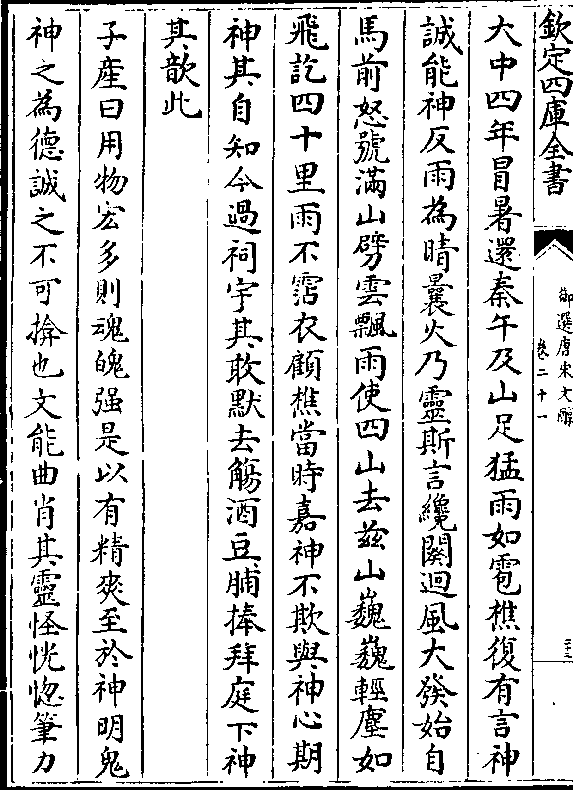 欽定四庫全書
御選唐宋文醇
卷二十一
大中四年冒暑還秦午及山足猛雨如雹樵復有言神
誠能神反雨為晴曩火乃靈斯言纔闋迴風大發始自
馬前怒號滿山劈雲飄雨使四山去茲山巍巍輕塵如
飛訖四十里雨不霑衣顧樵當時嘉神不欺與神心期
神其自知今過祠宇其敢默去觴酒豆脯捧拜庭下神
其歆此
子產曰用物宏多則魂魄强是以有精爽至於神明鬼
神之為德誠之不可揜也文能曲肖其靈怪恍惚筆力